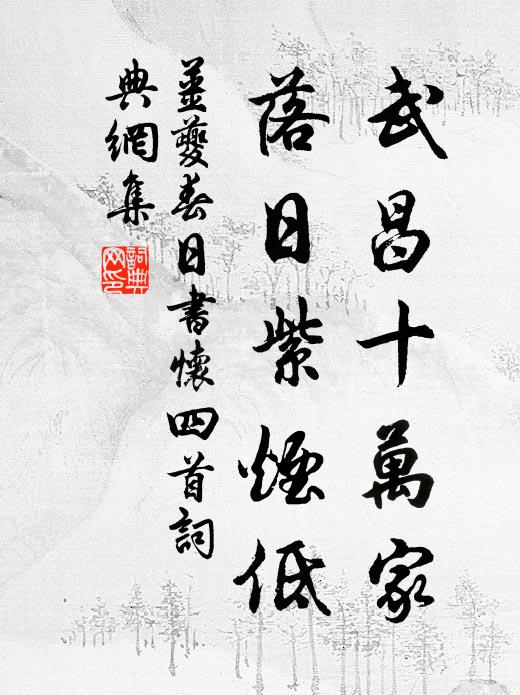 武昌十萬家
落日紫煙低
姜夔春日書懷四首詞
典網集
詞典網印